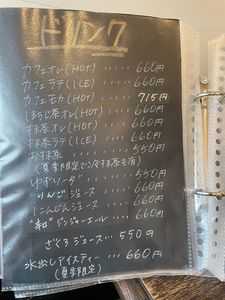 ドリンク
カフェオレ(HOT) ..... 660円
カフェラテ(ICE) ..... 660円
カフェモカ(HOT) .... 715円
ほうじ茶オレ(HOT) .... 660円
抹茶オレ(HOT) ..... 660円
抹茶ラテ(ICE) ..... 660円
お抹茶 ..... 550円
(夏季限定で冷抹茶も有)
ゆずソーダ ..... 550円
りんごジュース ..... 660円
にんじんジュース ..... 660円
"和"ジンジャーエール .... 660円
ざくろジュース ... 550円
水出しアイスティー .... 660円
(夏季限定)